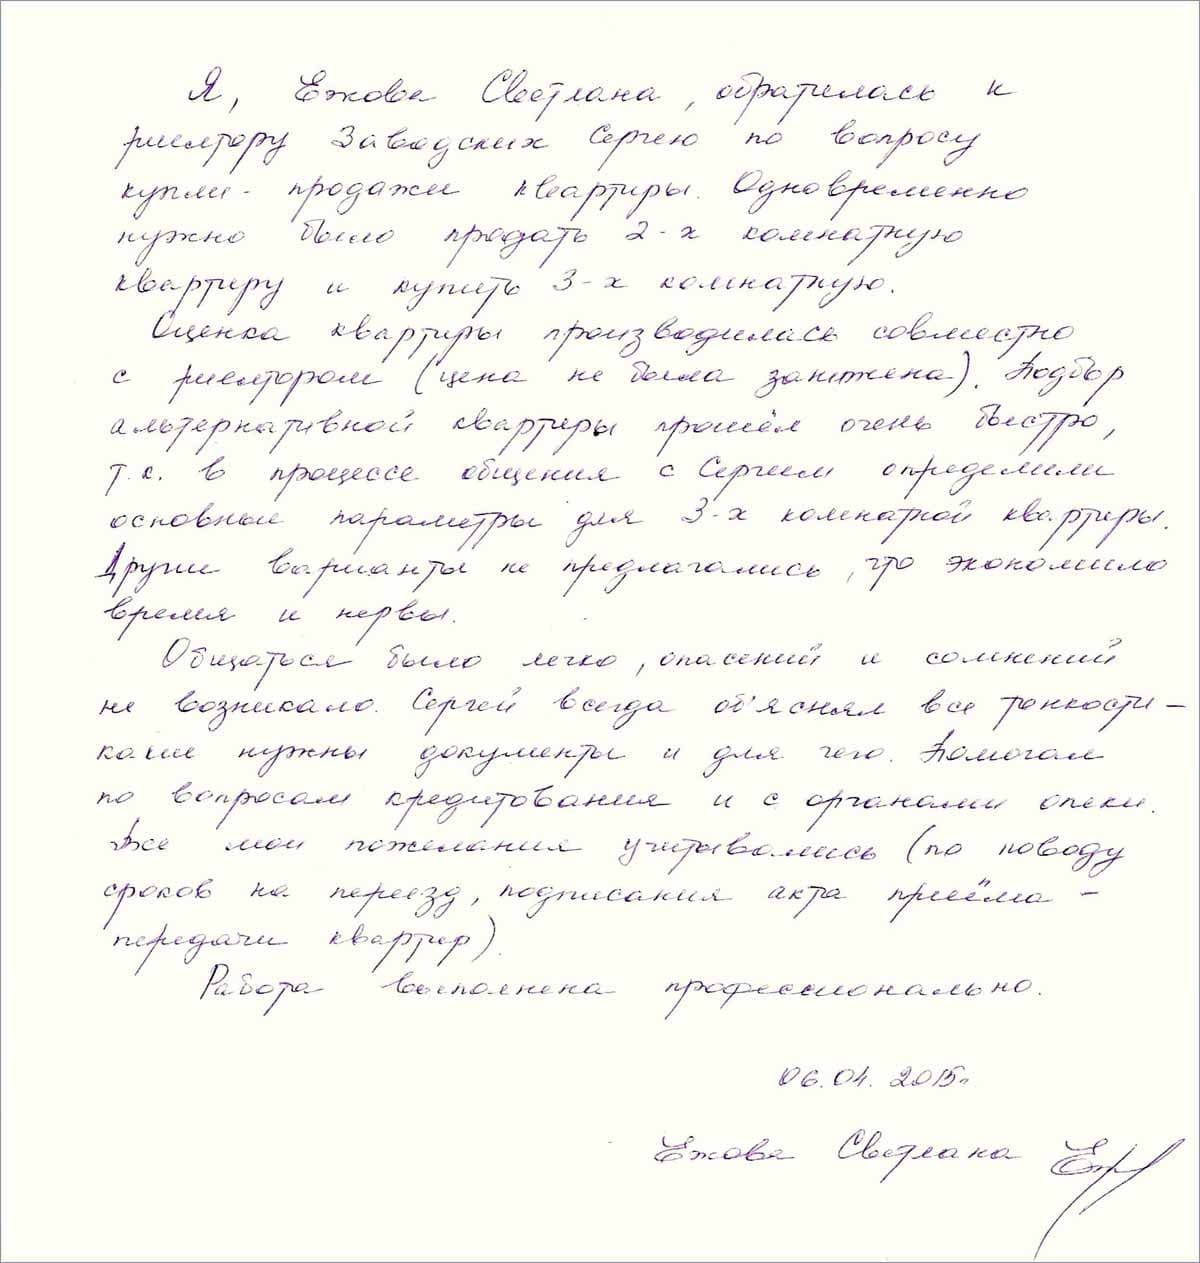 Я, Ежова Светлана, обратилась к
риелтору Заводских Сергею по вопросу
купли - продажи квартиры. Одновременно
нужно было продать 2-х комнатную
квартиру и купить 3-х комнатную.
Оценка квартиры производилась совместно
с риелтором (цена не была занижена). Подбор
альтернативной квартиры прошёл очень быстро,
т.к. в процессе общения с Сергеем определили
основные параметры для 3-х комнатной квартиры.
Другие варианты не предлагались, что экономило
время и нервы.
Общаться было легко, опасений и сомнений
не возникало. Сергей всегда объяснял все тонкости -
какие нужны документы и для чего. Помогал
по вопросам кредитования и с органами опеки.
Все мои пожелания учитывались (по поводу
сроков на переезд, подписания акта приёма -
передачи квартир).
Работа выполнена профессионально.
06.04.2015г.
Ежова Светлана